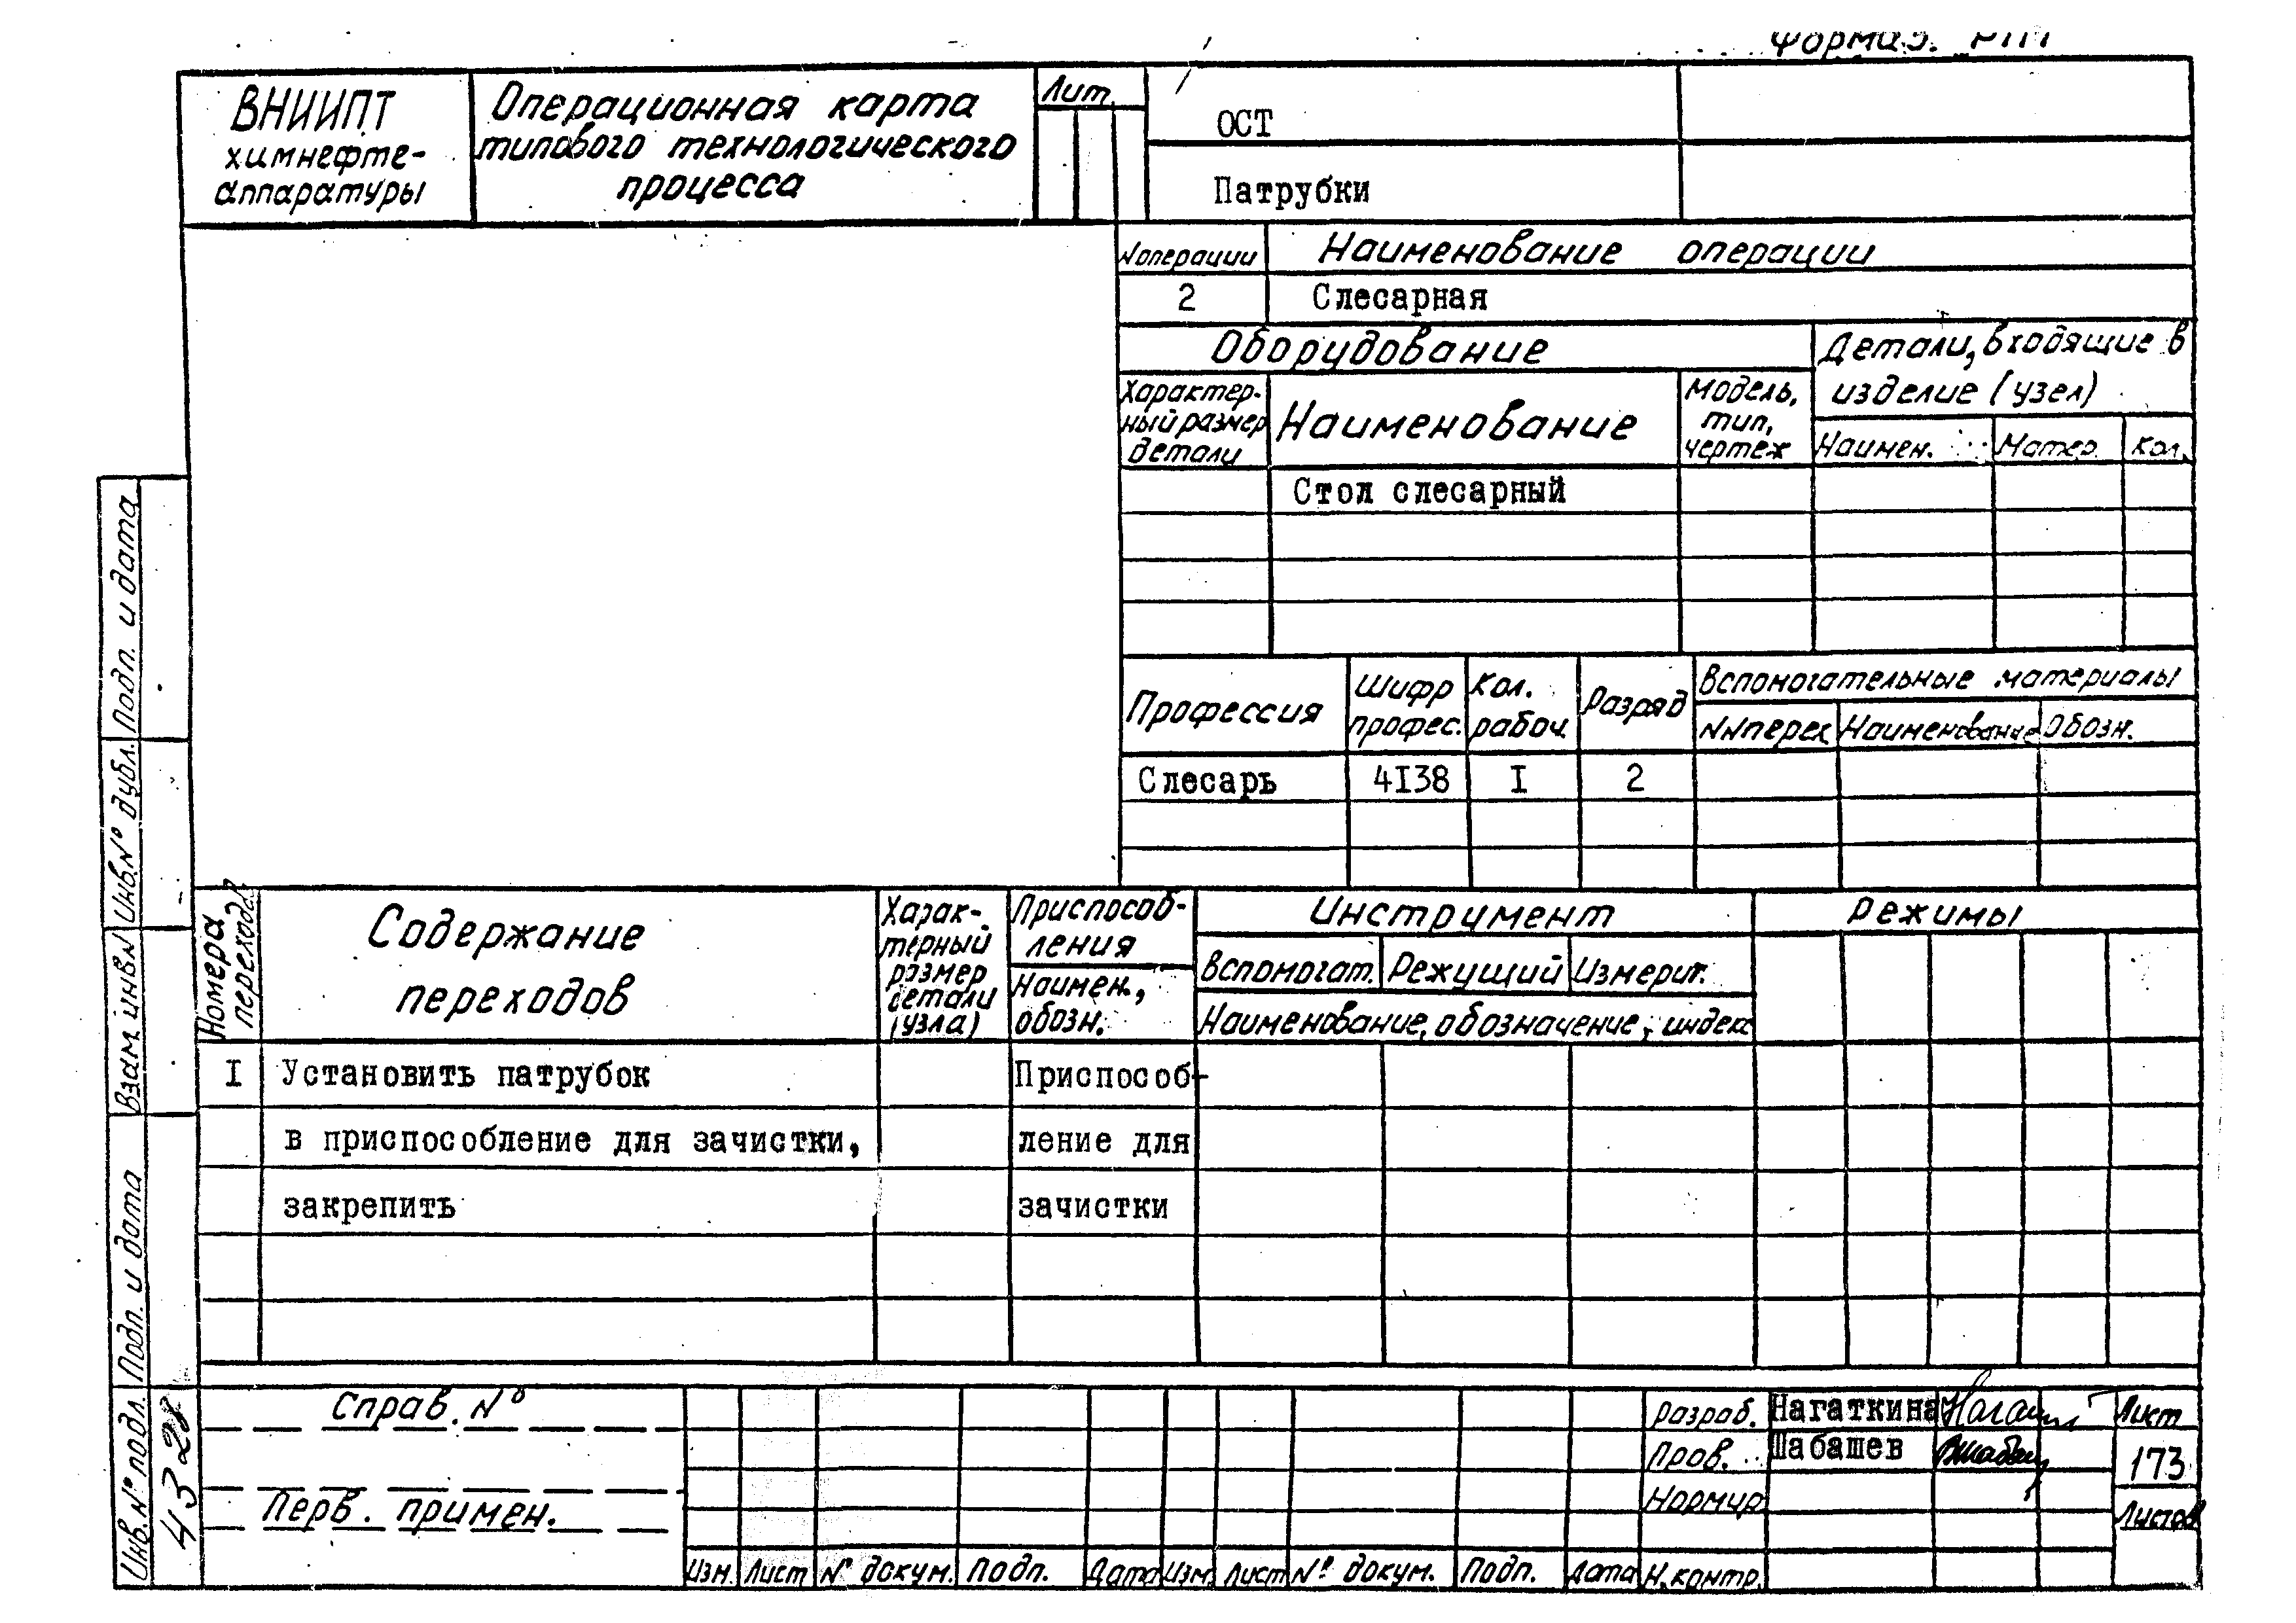 Форма 5.
ВНИИПТ
химнефте-
аппаратуры
Операционная карта
типового технологического
процесса
Лит.
ОСТ
Патрубки
N операции
Наименование операции
2
Слесарная
Оборудование
Детали, входящие в
изделие (узел)
Характер-
ный размер
детали
Наименование
Модель,
тип,
чертеж
Наимен.
Матер.
Кол.
Стол слесарный
Профессия
Шифр
профес.
Кол.
рабоч.
Разряд
Вспомогательные материалы
NN перех
Наименование
Обозн.
Слесарь
4I38
I
2
Номера
переходов
Содержание
переходов
Харак-
терный
размер
детали
(узла)
Приспособ-
ления
Наимен.,
обозн.
Инструмент
Вспомогат.
Режущий
Измерит.
Наименование, обозначение, индекс
Режимы
I
Установить патрубок
Приспособ-
в приспособление для зачистки,
ление для
закрепить
зачистки
Справ. №
Перв. примен.
Изм.
Лист
№ докум.
Подп.
Дата
Изм.
Лист
№ докум.
Подп.
Дата
Разраб.
Нагаткина
Пров.
Шабашев
Нормир
Н.контр.
Лист
173
Листов
Подп. и дата
Инв.№ дубл.
Взам. инв.№
Подп. и дата
Инв.№ подл.
4328